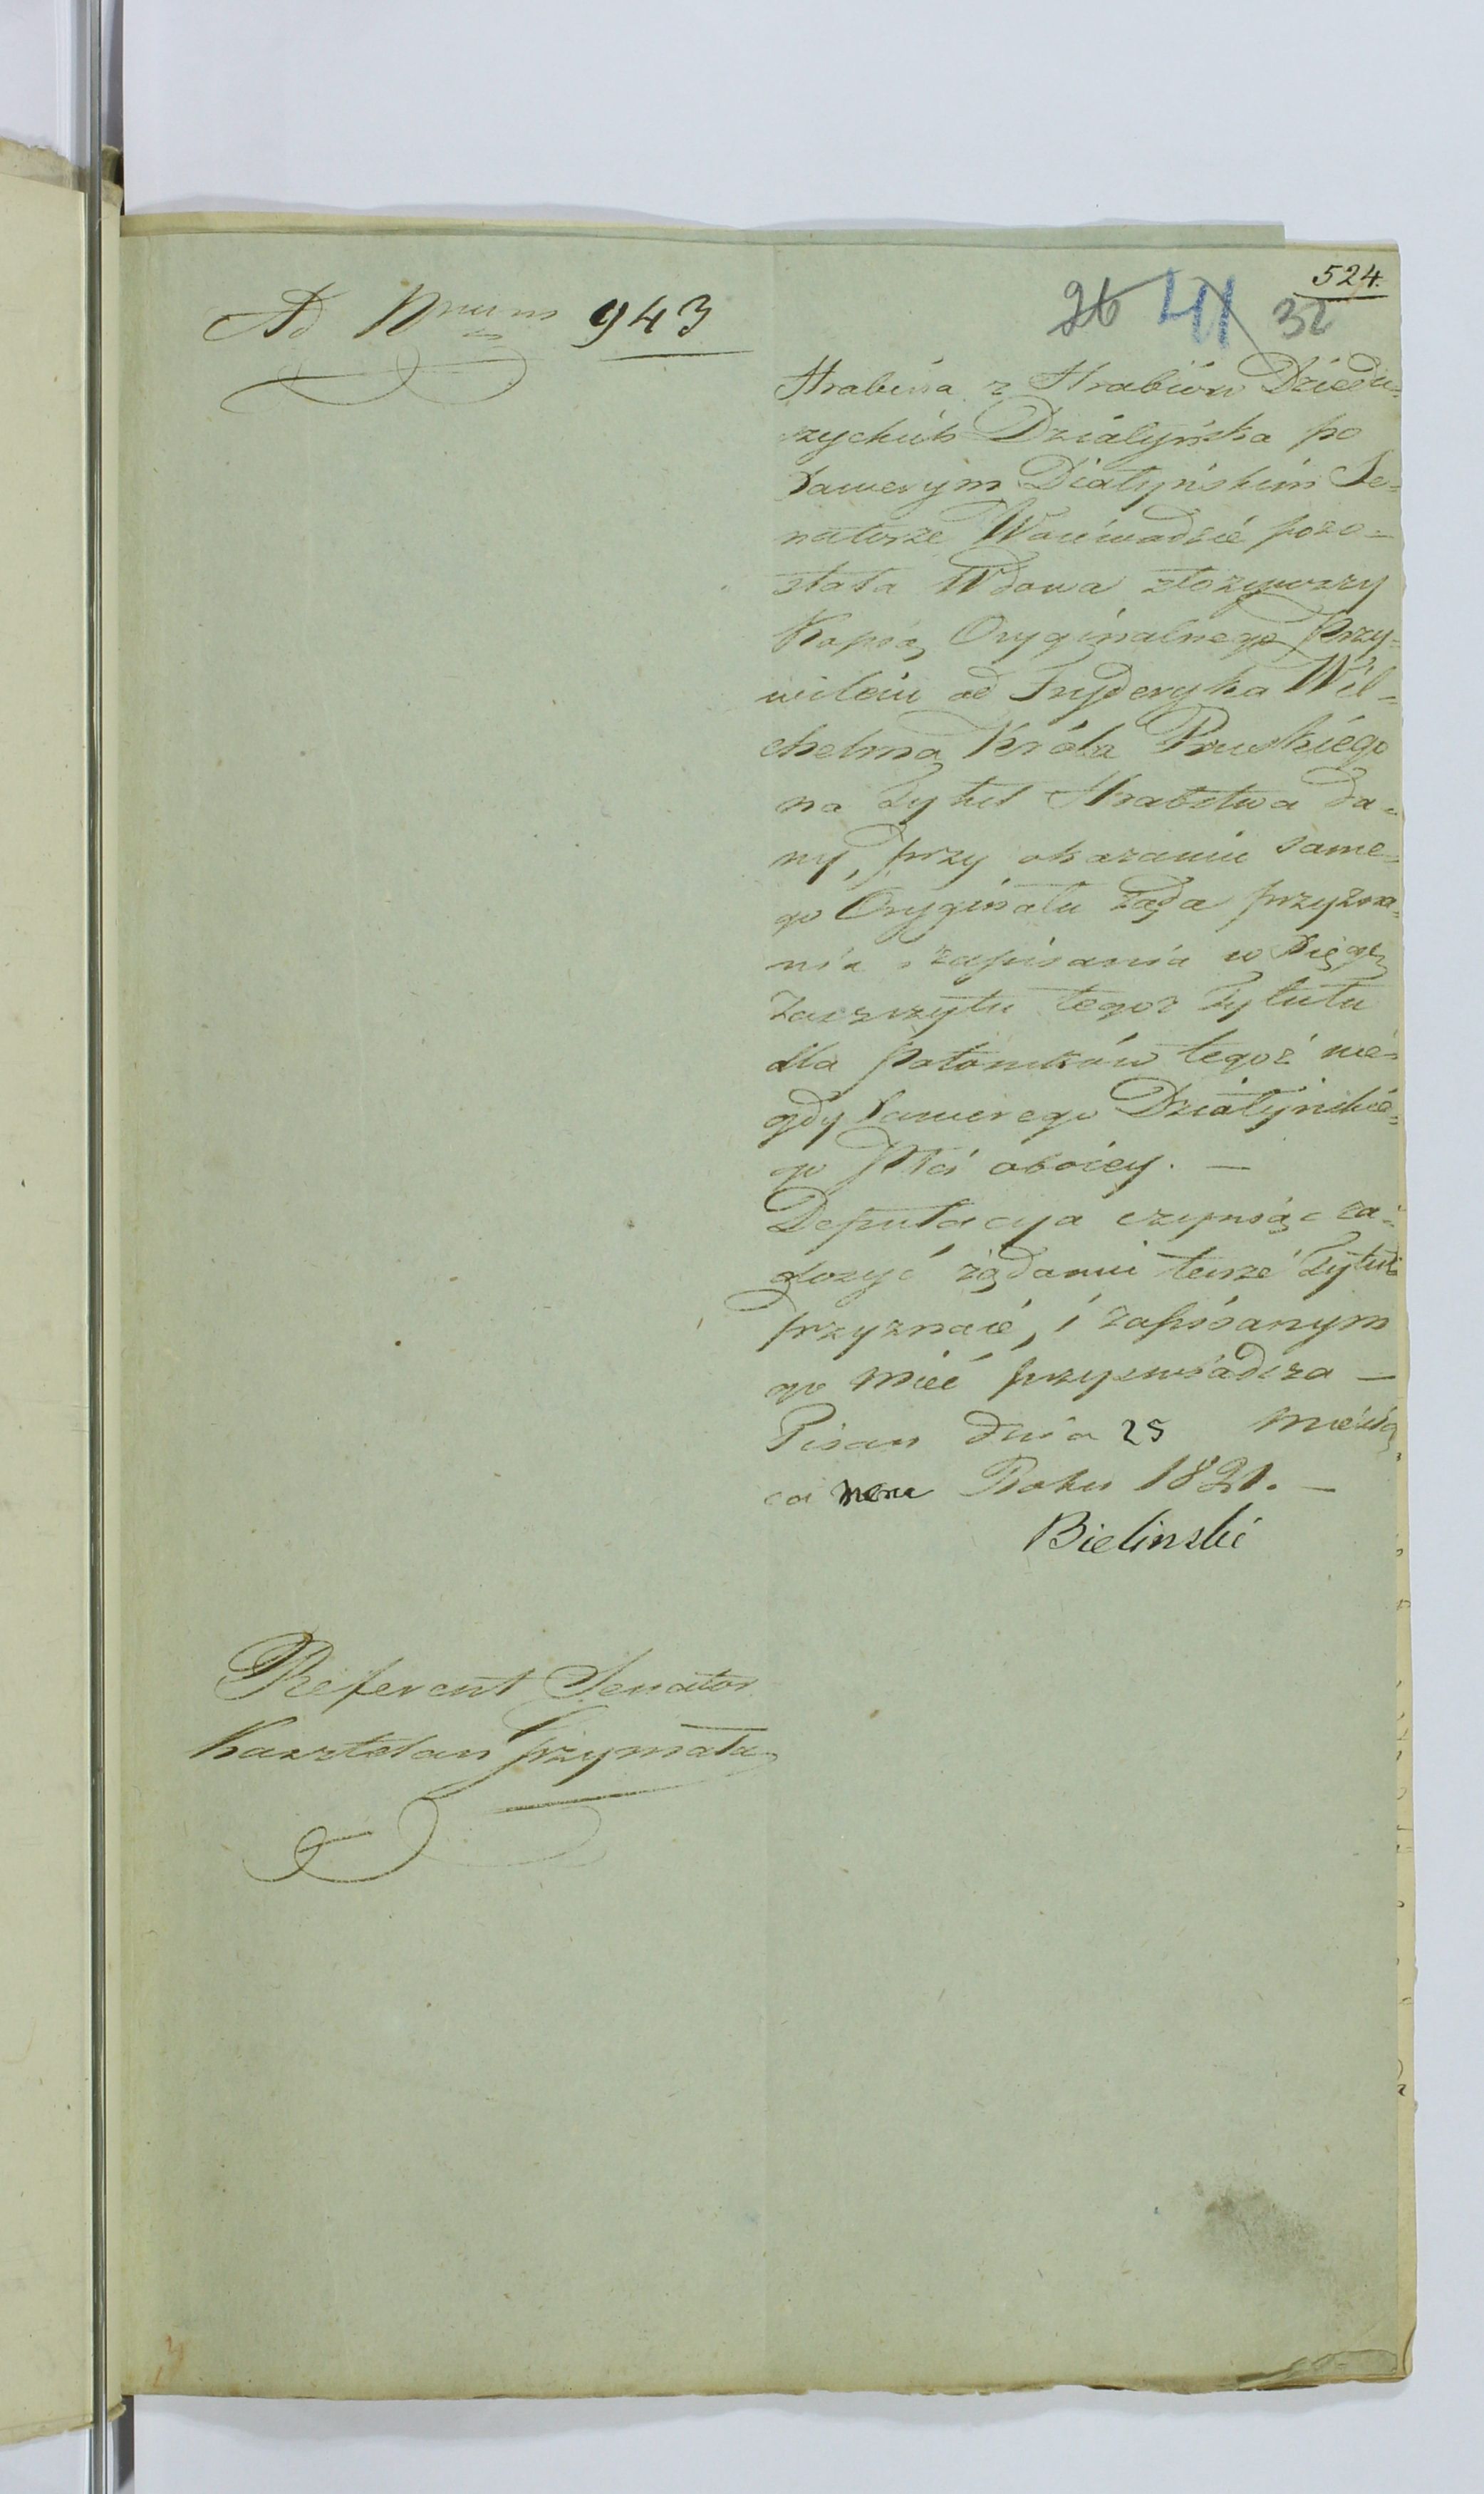 524.
26 41 32
Ad Nrum 943
Hrabina z Hrabiów Dziedu=
szyckich Działyńska po
Xawerym Działyńskim Se=
natorze Woiewodzie pozo=
stała Wdowa złożywszy
Kopią Oryginalnego Przy=
wileiu od Fryderyka Wil=
chelma Króla Pruskiego
na Tytuł Hrabstwa da=
ny, przy okazaniu same=
go Oryginału żąda przyzna=
nia i zapisania w Xięgę
Zaszczytu tegoż Tytułu
dla potomków tegoż nie=
gdy Xawerego Działyńskie=
go Płci oboiey. —
Deputacya czyniąc za=
dosyć żądaniu temże Tytuł
przyznaie, i zapisanym
go mieć przyświadcza —
Pisan dnia 25 Miesią
ca Roku 1821. —
Bielinski
Referent Senator
Kasztelan Grzymała